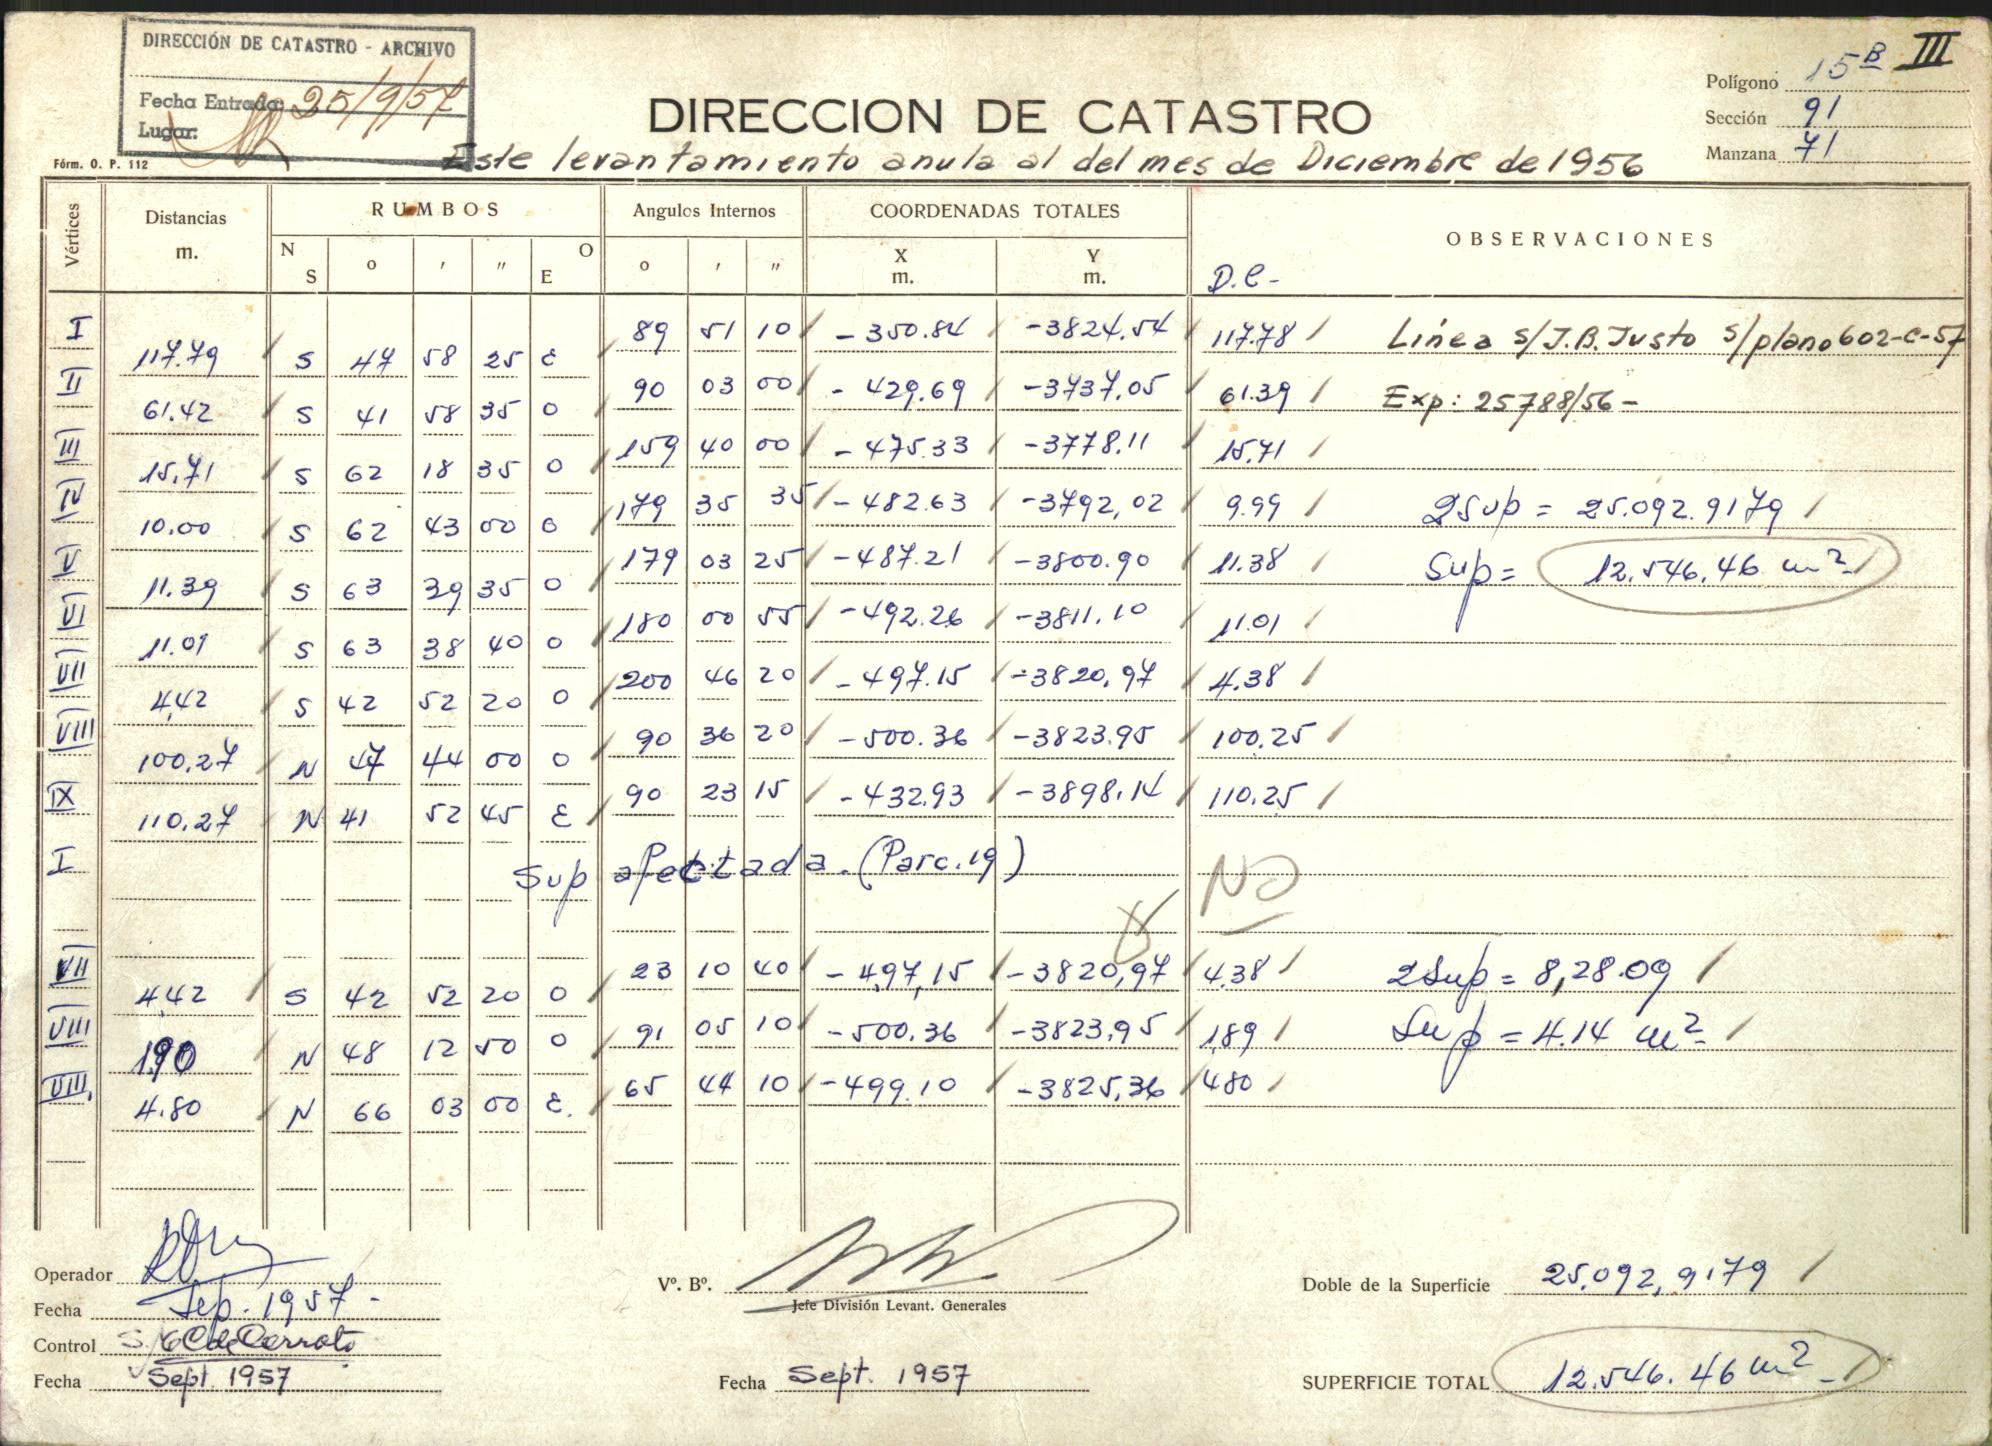 DIRECCIÓN DE CATASTRO - ARCHIVO
Fecha Entrada: 25/9/57
Lugar:
Fórm. O. P. 112
DIRECCION DE CATASTRO
Polígono 15B III
Sección 91
Manzana 71
Este levantamiento anula al del mes de Diciembre de 1956
Vértices Distancias m. RUMBOS Angulos Internos COORDENADAS TOTALES OBSERVACIONES
N S o ' " O E o ' " X m. Y m. D.C-
I 89 51 10 -350.84 -3824.54 117.78 Línea s/J.B.Justo s/plano 602-C-57
117.79 S 47 58 25 E
II 90 03 00 -429.69 -3737.05 61.39 Exp: 25788/56-
61.42 S 41 58 35 O
III 159 40 00 -475.33 -3778.11 15.71
15.71 S 62 18 35 O
IV 179 35 35 -482.63 -3792,02 9.99 2Sup = 25.092.9179
10.00 S 62 43 00 O
V 179 03 25 -487.21 -3800.90 11.38 Sup = 12.546.46 m2
11.39 S 63 39 35 O
VI 180 00 55 -492.26 -3811.10 11.01
11.01 S 63 38 40 O
VII 200 46 20 -497.15 -3820,97 4.38
4,42 S 42 52 20 O
VIII 90 36 20 -500.36 -3823.95 100.25
100.27 N 47 44 00 O
IX 90 23 15 -432.93 -3898.14 110.25
110.27 N 41 52 45 E
I Sup afectada. (Parc.19) NO
VII 23 10 40 -497,15 -3820,97 4.38 2Sup = 8,28.09
4,42 S 42 52 20 O
VIII 91 05 10 -500.36 -3823,95 1,89 Sup = 4.14 m2
1.90 N 48 12 50 O
VIII, 65 44 10 -499.10 -3825,36 480
4.80 N 66 03 00 E.
Operador
Fecha Sep. 1957-
Control S. C de Cerrato
Fecha Sept. 1957
Vº. Bº.
Jefe División Levant. Generales
Fecha Sept. 1957
Doble de la Superficie 25.092,9179
SUPERFICIE TOTAL 12.546.46 m2